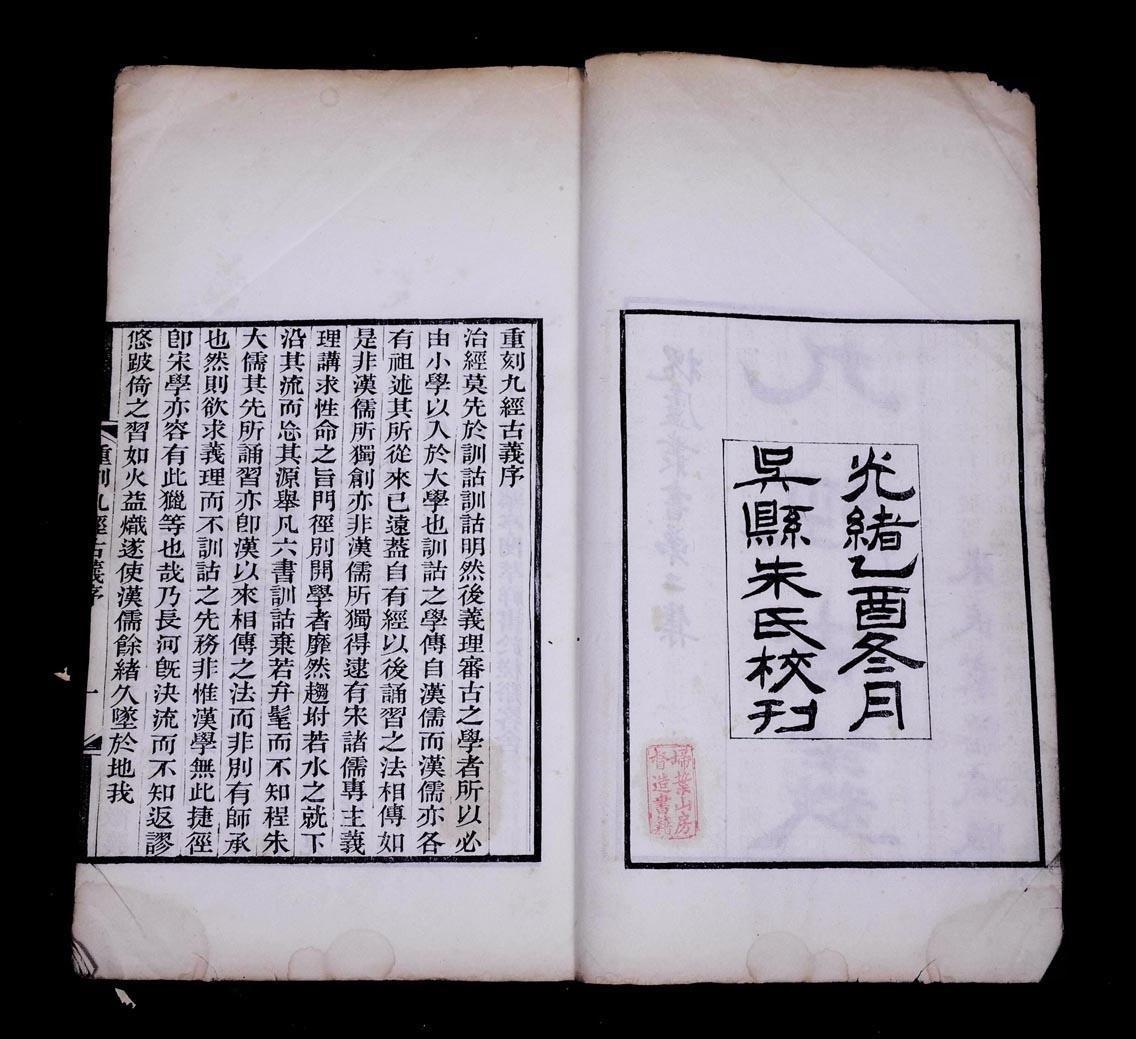 光緒乙酉冬月
吳縣朱氏校刊
埽葉山房
督造書籍
重刻九經古義序
治經莫先於訓詁訓詁明然後義理審古之學者所以必
由小學以入於大學也訓詁之學傳自漢儒而漢儒亦各
有祖述其所從來已遠蓋自有經以後誦習之法相傳如
是非漢儒所獨創亦非漢儒所獨得逮有宋諸儒專主義
理講求性命之旨門徑別開學者靡然趨坿若水之就下
沿其流而忘其源舉凡六書訓詁棄若弁髦而不知程朱
大儒其先所誦習亦卽漢以來相傳之法而非別有師承
也然則欲求義理而不訓詁之先務非惟漢學無此捷徑
卽宋學亦容有此獵等也哉乃長河旣決流而不知返謬
悠跛倚之習如火益熾遂使漢儒餘緒久墜於地我
重刻九經古義序
一